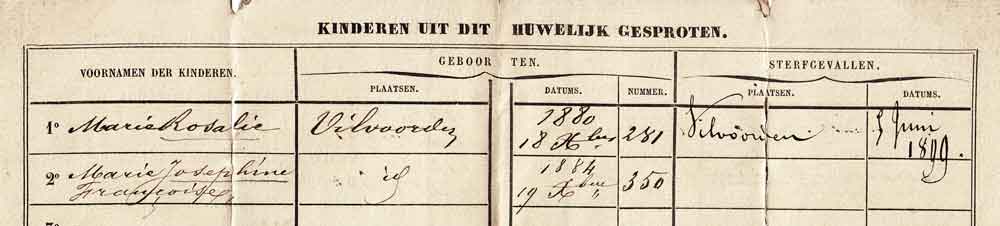 KINDEREN UIT DIT HUWELIJK GESPROTEN.
VOORNAMEN DER KINDEREN. GEBOORTEN. STERFGEVALLEN.
PLAATSEN. DATUMS. NUMMER. PLAATSEN. DATUMS.
1º Marie Rosalie Vilvoorden 1880 Vilvoorden 5 Juni
18 Xber 281 1899.
2º Marie Josephine id 1884
Françoise 19 Xbre 350